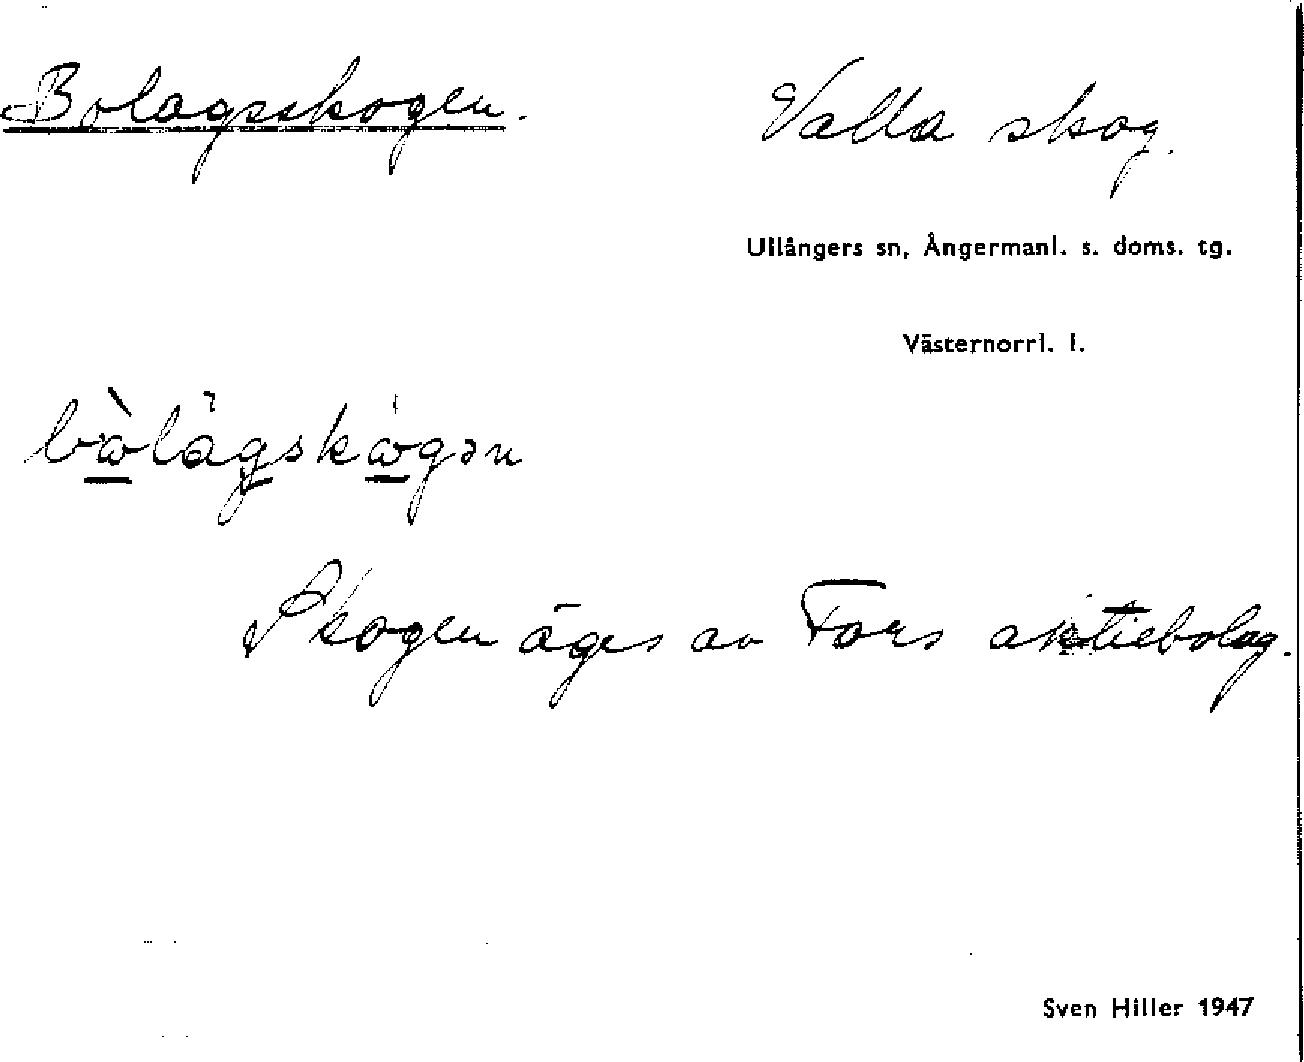 Bolagsskogen.
Valla skog.
Ullångers sn, Ångermanl. s. doms. tg.
Västernorrl. l.
Skogen äges av Fors aktiebolag.
Sven Hiller 1947